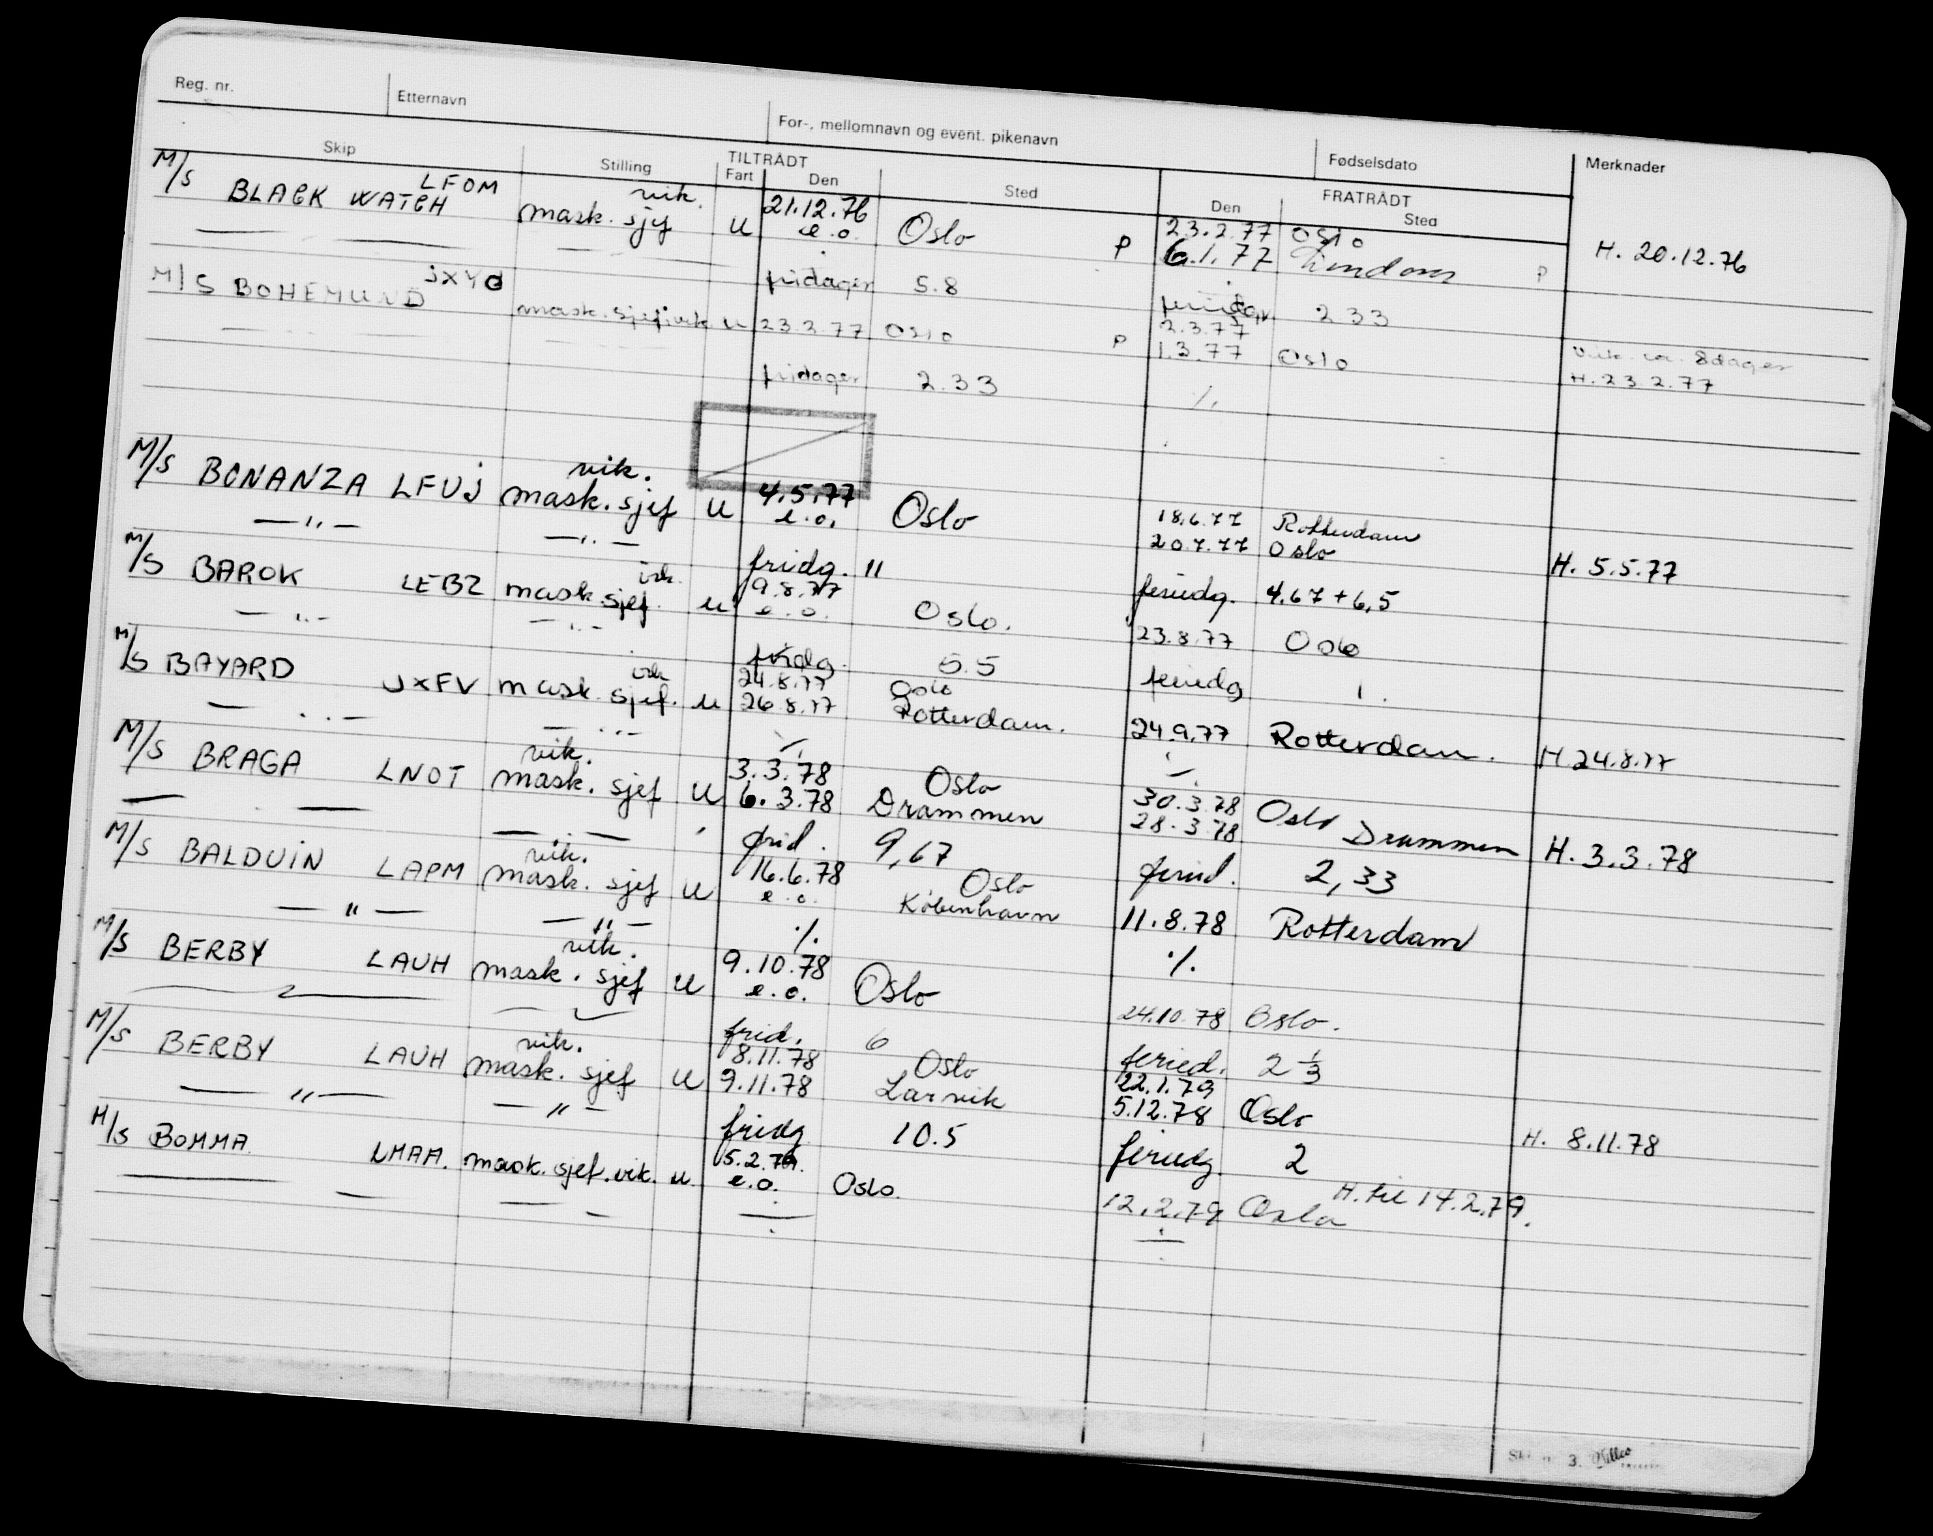 Reg. nr. Etternavn For-, mellomnavn og event. pikenavn Fødselsdato Merknader
Skip Stilling TILTRÅDT FRATRÅDT
Fart Den Sted Den Sted
M/S BLACK WATCH LFOM vik. mask. sjef u 21.12.76 e.o. Oslo P 23.2.77 Oslo H. 20.12.76
6.1.77 P
fridager 5.8 feriedager 2 33
M/S BOHEMUND JXYO mask. sjef.vik u 23.2.77 Oslo P 2.3.77
1.3.77 Oslo 8dager
H. 23.2.77
fridager 2.33 ./.
M/S BONANZA LFUJ vik. mask. sjef u 4.5.77 e.o. Oslo 18.6.77 Rotterdam
— " — — " — 20.7.77 Oslo H. 5.5.77
fridg. 11 feriedg. 4,67 + 6,5
M/S BAROK LEBZ mask. sjef. vik. u 9.8.77 e.o. Oslo. 23.8.77 Oslo
— " — — " —
fridg. 5.5 feriedg 1.
M/S BAYARD JXFV mask. sjef. vik u 24.8.77 Oslo
26.8.77 Rotterdam. 24.9.77 Rotterdam. H 24.8.77
— " — — " —
M/S BRAGA LNOT vik. mask. sjef u 3.3.78 Oslo 30.3.78 Oslo
6.3.78 Drammen 28.3.78 Drammen H. 3.3.78
frid. 9,67 feried. 2,33
M/S BALDUIN LAPM vik. mask. sjef u 16.6.78 Oslo
e.o. København 11.8.78 Rotterdam
— " — — " — ./. ./.
M/S BERBY LAUH vik. mask. sjef u 9.10.78 e.o. Oslo 24.10.78 Oslo.
frid. 6 feried. 2 1/3
M/S BERBY LAUH vik. mask. sjef u 8.11.78 Oslo 22.1.79
9.11.78 Larvik 5.12.78 Oslo H. 8.11.78
— " — — " —
fridg 10.5 feriedg. 2
M/S BOMMA. LMAM. mask. sjef. vik. u. 5.2.79. e.o. Oslo. H. til 14.2.79.
12.2.79 Oslo
3.